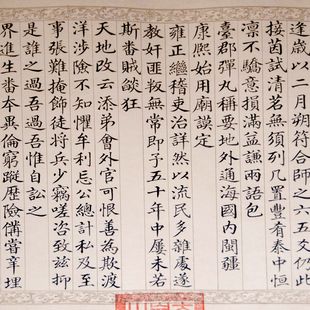 逢歲以二月朔符合師之六五爻仍此
接茵試清茗無須列几置豐肴泰中恒
凜不驕意損滿益謙兩語包
臺郡彈丸稱要地外通海國內閩疆
康熙始用廟謨定
雍正繼稽吏治詳然以流民多雜處遂
教奸匪叛無常即予五十年中屢未若
斯番賊燄狂
天地改云添弟會外官可恨善為欺渡
洋涉險不知懼牟利忘公總計私及至
事張難掩飾徒將兵少竊嗟咨致茲抑
是誰之過吾過吾惟自訟之
界進生番本異倫窮蹤歷險備嘗辛埋